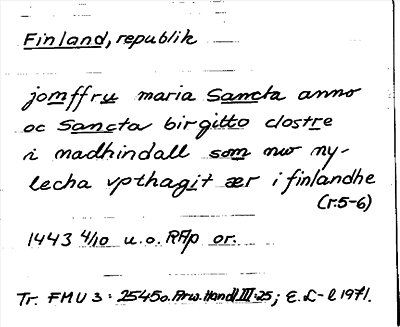 Finland, republik
jomffru maria Sancta anno
oc Sancta birgitto clostre
i madhindall som nw ny-
lecha vpthagit ær i finlandhe
(r.5-6)
1443 4/10 u.o. RAp or.
Tr. FMU 3: 2545 o. Arw. Handl III:25; E. L-l 1971.